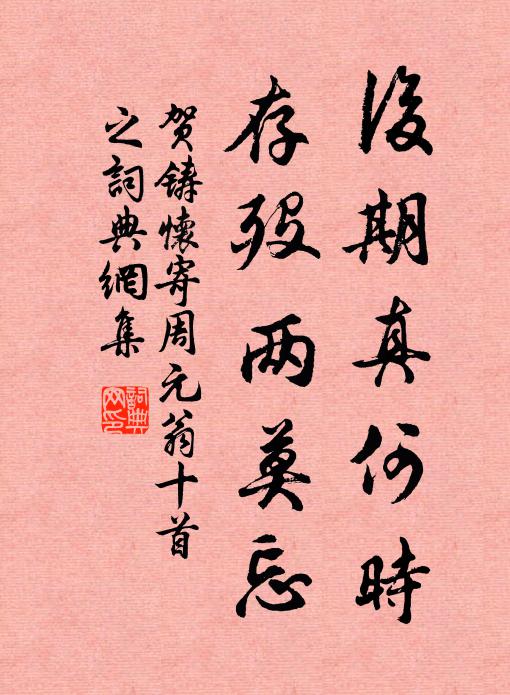 後期真何時
存殁两莫忘
贺鑄懷寄周元翁十首
之詞典網集
詞典网印